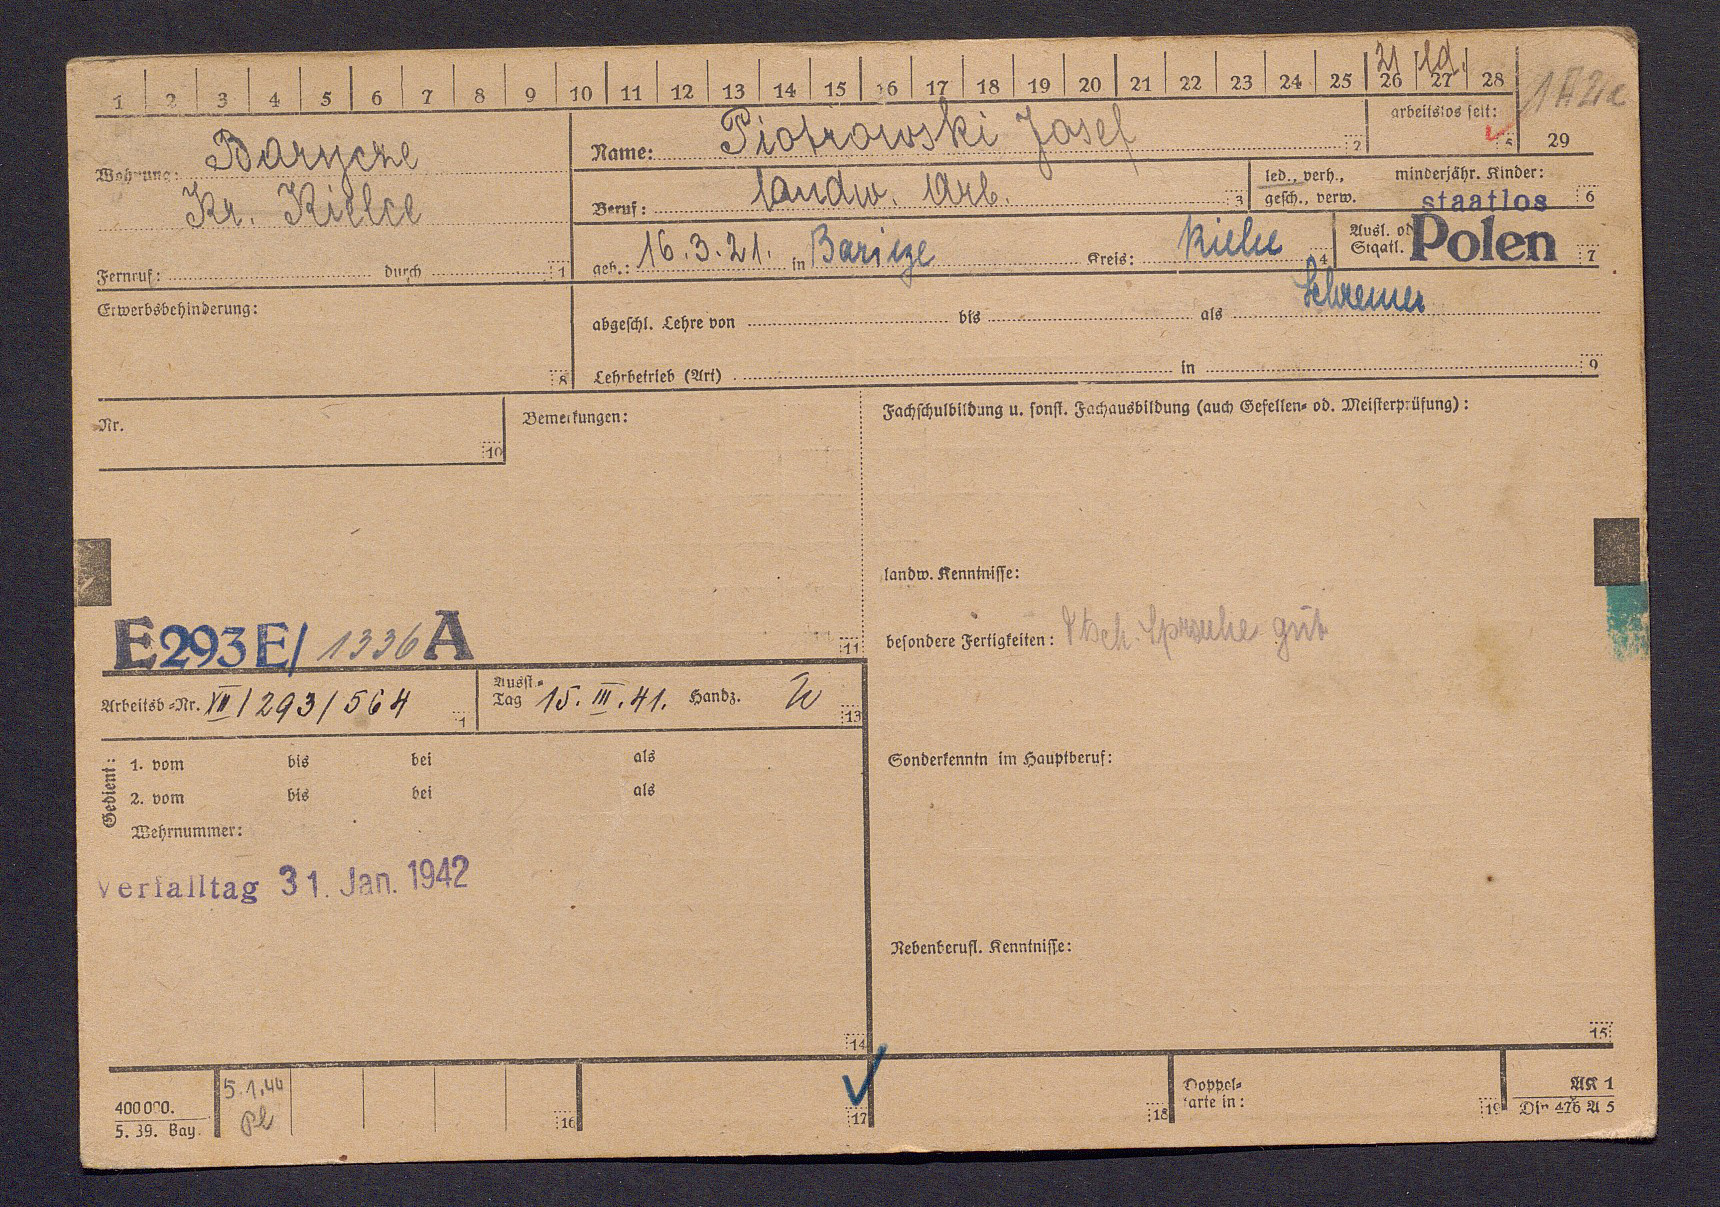 21 ld.
1 2 3 4 5 6 7 8 9 10 11 12 13 14 15 16 17 18 19 20 21 22 23 24 25 26 27 28
29
arbeitslos seit: 5
Wohnung: Barycze
Kr. Kielce
Fernruf: durch 1
Name: Piotrowski Josef 2
Beruf: landw. Arb. 3
led., verh.,
gesch., verw.
minderjähr. Kinder:
staatlos 6
geb.: 16.3.21. in Barieze Kreis: Kielce 4
Ausl. od.
Staatl. Polen 7
Erwerbsbehinderung: 8
abgeschl. Lehre von bis als Schreiner
Lehrbetrieb (Art) in 9
Nr. 10
Bemerkungen:
E 293 E/ 1336 A 11
Fachschulbildung u. sonst. Fachausbildung (auch Gesellen- od. Meisterprüfung):
landw. Kenntnisse:
besondere Fertigkeiten: Dtsch. Sprache gut
Sonderkenntn im Hauptberuf:
Nebenberufl. Kenntnisse:
15
Arbeitsb-Nr. VII/293/564 1
Ausst.-
Tag 15. III. 41. Handz. 13
Gedient: 1. vom bis bei als
2. vom bis bei als
Wehrnummer:
Verfalltag 31. Jan. 1942
14
400000.
5. 39. Bay.
5.1.44
Pl
16
17
18
Doppel-
karte in: 19
AK 1
Din 476 A 5